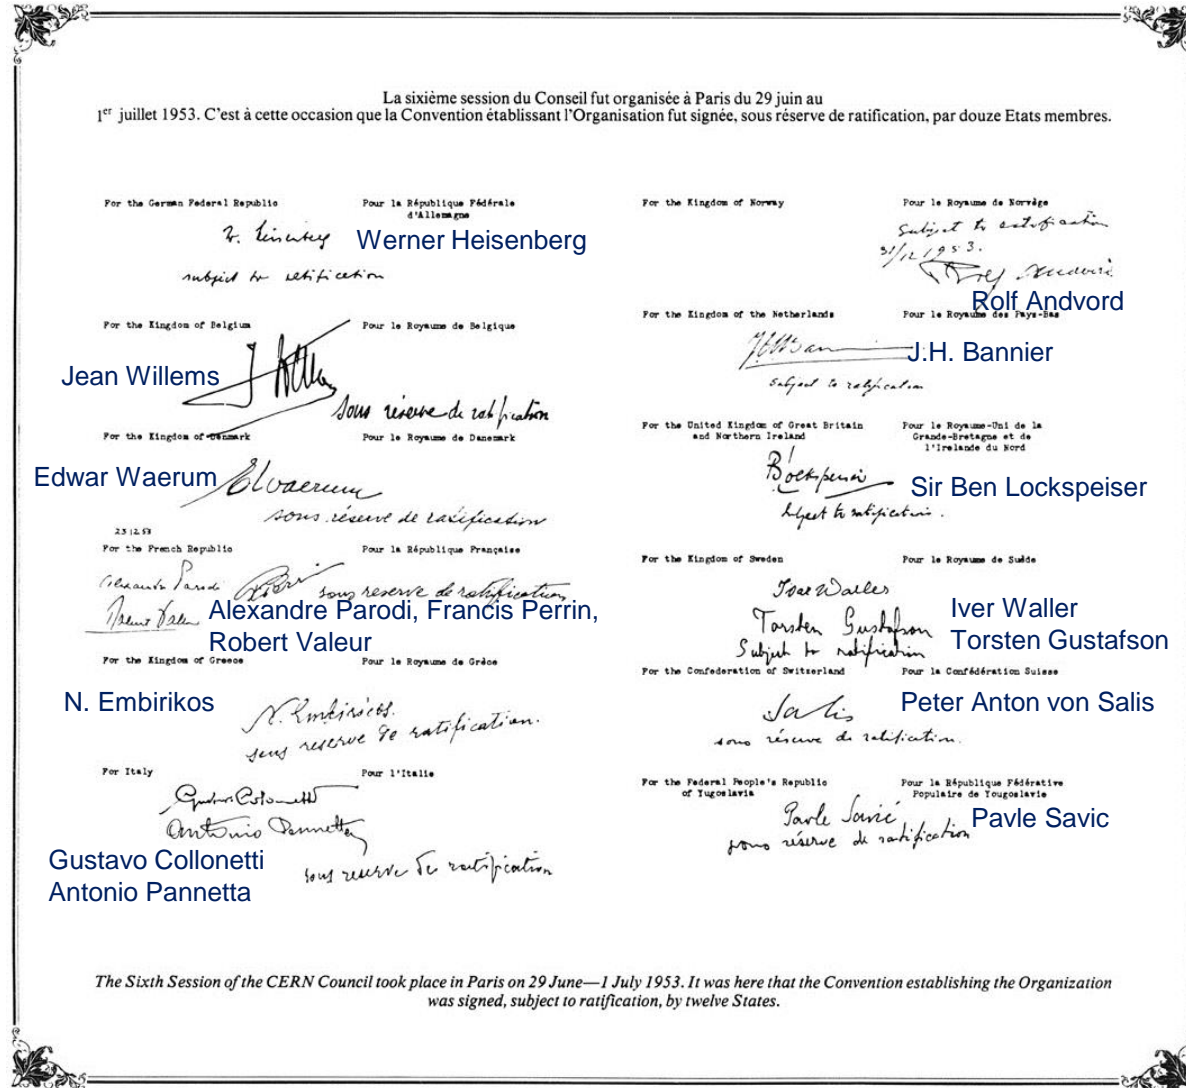 La sixième session du Conseil fut organisée à Paris du 29 juin au
1er juillet 1953. C'est à cette occasion que la Convention établissant l'Organisation fut signée, sous réserve de ratification, par douze Etats membres.
For the German Federal Republic
Pour la République Fédérale
d'Allemagne
W. Heisenberg
Werner Heisenberg
subject to ratification
For the Kingdom of Belgium
Pour le Royaume de Belgique
Jean Willems
J Willems
sous réserve de ratification
For the Kingdom of Denmark
Pour le Royaume de Danemark
Edwar Waerum
E Waerum
sous réserve de ratification
23 12 53
For the French Republic
Pour la République Française
Alexandre Parodi
Perrin
sous reserve de ratification
Robert Valeur
Alexandre Parodi, Francis Perrin,
Robert Valeur
For the Kingdom of Greece
Pour le Royaume de Grèce
N. Embirikos
N. Embiricos.
sous reserve de ratification.
For Italy
Pour l'Italie
Gustavo Colonnetti
Antonio Pennetta
Gustavo Collonetti
Antonio Pannetta
sous reserve de ratification
For the Kingdom of Norway
Pour le Royaume de Norvège
Subject to ratification
31/12 1953.
Rolf Andvord
Rolf Andvord
For the Kingdom of the Netherlands
Pour le Royaume des Pays-Bas
JHBannier
J.H. Bannier
subject to ratification
For the United Kingdom of Great Britain
and Northern Ireland
Pour le Royaume-Uni de la
Grande-Bretagne et de
l'Irelande du Nord
B Lockspeiser
Sir Ben Lockspeiser
Subject to ratification.
For the Kingdom of Sweden
Pour le Royaume de Suède
Ivar Waller
Torsten Gustafson
Subject to ratification
Iver Waller
Torsten Gustafson
For the Confederation of Switzerland
Pour la Confédération Suisse
Salis
Peter Anton von Salis
sous réserve de ratification.
For the Federal People's Republic
of Yugoslavia
Pour la République Fédérative
Populaire de Yougoslavie
Pavle Savić
Pavle Savic
sous réserve de ratification
The Sixth Session of the CERN Council took place in Paris on 29 June—1 July 1953. It was here that the Convention establishing the Organization
was signed, subject to ratification, by twelve States.